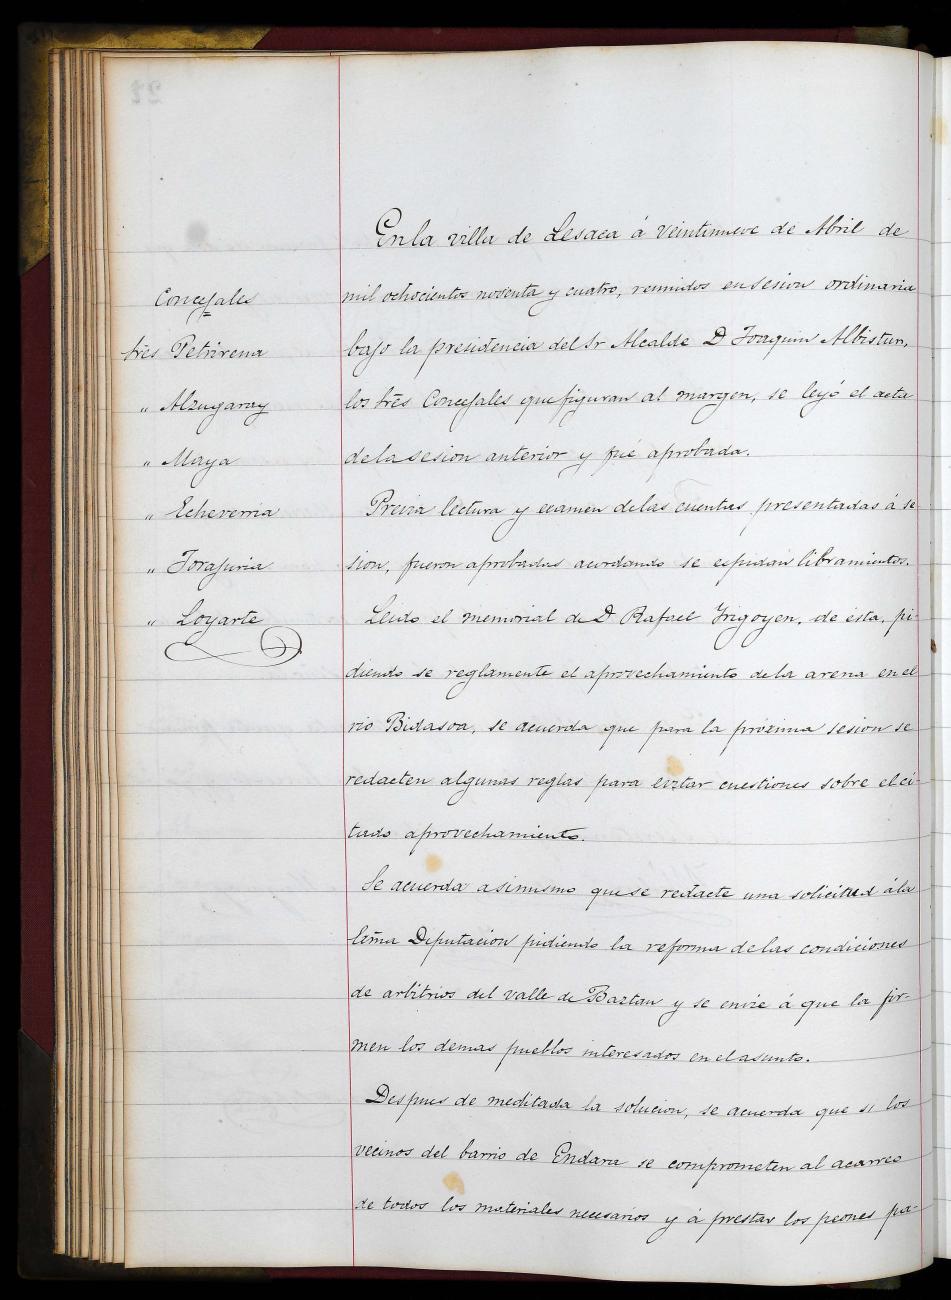 Concejales
tres Petrirena
" Alzugaray
" Maya
" Echeverria
" Torajuria
" Loyarte
En la villa de Lesaca á veintinueve de Abril de
mil ochocientos noventa y cuatro, reunidos en sesion ordinaria
bajo la presidencia del Sr Alcalde D Joaquin Albistur,
los tres Concejales que figuran al margen, se leyó el acta
de la sesion anterior y fué aprobada.
Previa lectura y examen de las cuentas presentadas á se
sion, fueron aprobadas acordando se espidan libramientos.
Leido el memorial de D Rafael Yrigoyen, de ésta, pi-
diendo se reglamente el aprovechamiento de la arena en el
rio Bidasoa, se acuerda que para la próxima sesion se
redacten algunas reglas para evitar cuestiones sobre el ci-
tado aprovechamiento.
Se acuerda asimismo que se redacte una solicitud á la
Diputacion pidiendo la reforma de las condiciones
de arbitrios del valle de Baztan y se envie á que la fir-
men los demas pueblos interesados en el asunto.
Despues de meditada la solucion, se acuerda que si los
vecinos del barrio de Endara se comprometen al acarreo
de todos los materiales necesarios y á prestar los peones pa-